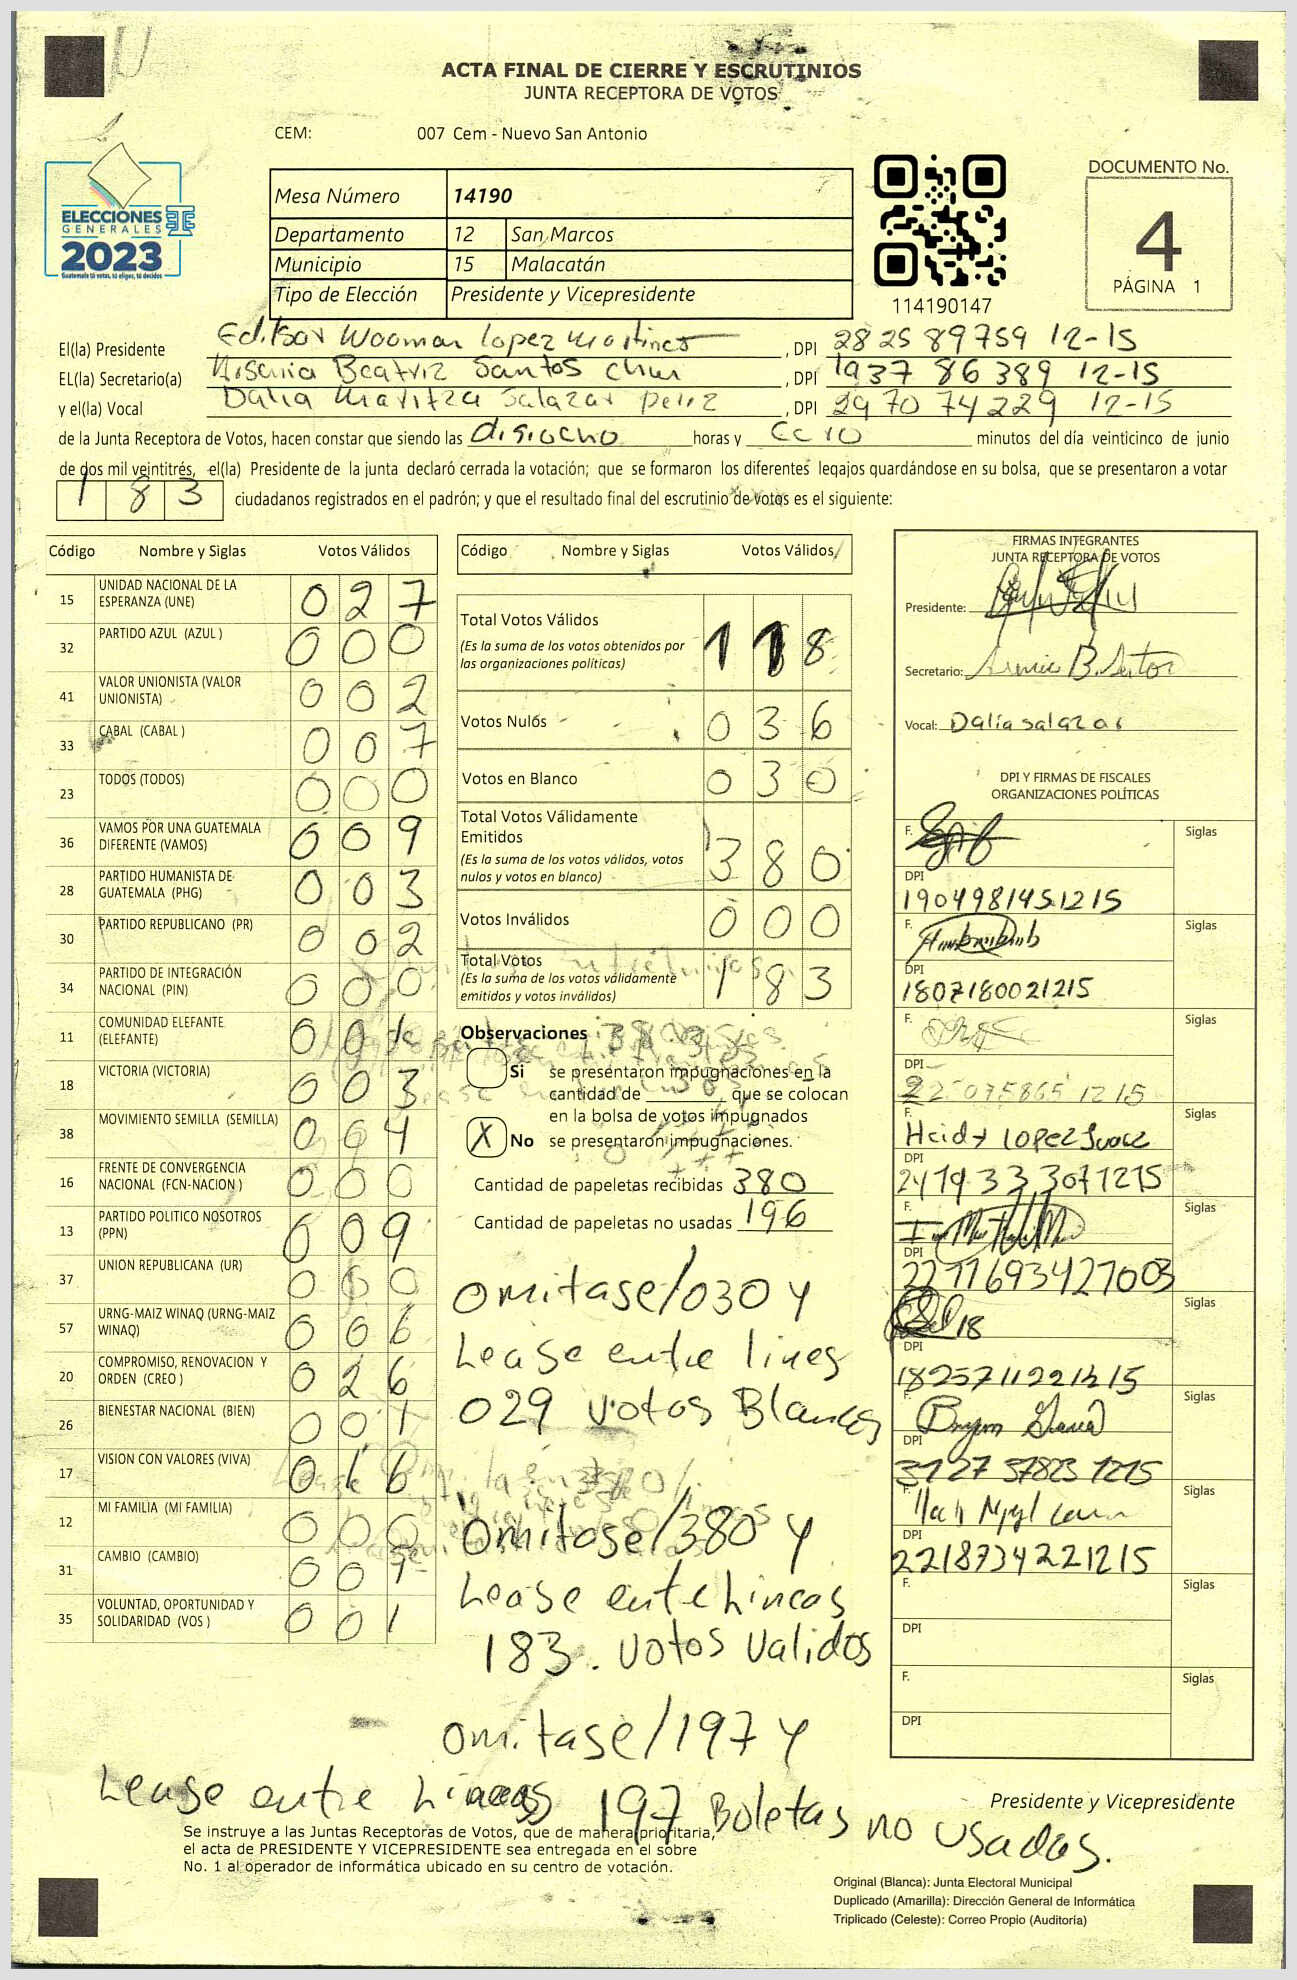 ACTA FINAL DE CIERRE Y ESCRUTINIOS
JUNTA RECEPTORA DE VOTOS
CEM: 007 Cem - Nuevo San Antonio
ELECCIONES
GENERALES
2023
Guatemala tú votas, tú eliges, tú decides
Mesa Número 14190
Departamento 12 San Marcos
Municipio 15 Malacatán
Tipo de Elección Presidente y Vicepresidente
114190147
DOCUMENTO No.
4
PÁGINA 1
El(la) Presidente Editsar Wooman Lopez Martinez , DPI 2825 89759 12-15
EL(la) Secretario(a) Beatriz Santos Chun , DPI 1937 86389 12-15
y el(la) Vocal Dalia Maritza Salazar perez , DPI 2970 74229 12-15
de la Junta Receptora de Votos, hacen constar que siendo las disiocho horas y cero minutos del día veinticinco de junio
de dos mil veintitrés, el(la) Presidente de la junta declaró cerrada la votación; que se formaron los diferentes legajos guardándose en su bolsa, que se presentaron a votar
183 ciudadanos registrados en el padrón; y que el resultado final del escrutinio de votos es el siguiente:
Código Nombre y Siglas Votos Válidos
15 UNIDAD NACIONAL DE LA ESPERANZA (UNE) 027
32 PARTIDO AZUL (AZUL ) 000
41 VALOR UNIONISTA (VALOR UNIONISTA) 002
33 CABAL (CABAL ) 007
23 TODOS (TODOS) 000
36 VAMOS POR UNA GUATEMALA DIFERENTE (VAMOS) 009
28 PARTIDO HUMANISTA DE GUATEMALA (PHG) 003
30 PARTIDO REPUBLICANO (PR) 002
34 PARTIDO DE INTEGRACIÓN NACIONAL (PIN) 000
11 COMUNIDAD ELEFANTE (ELEFANTE) 001
18 VICTORIA (VICTORIA) 003
38 MOVIMIENTO SEMILLA (SEMILLA) 004
16 FRENTE DE CONVERGENCIA NACIONAL (FCN-NACION ) 000
13 PARTIDO POLITICO NOSOTROS (PPN) 009
37 UNION REPUBLICANA (UR) 000
57 URNG-MAIZ WINAQ (URNG-MAIZ WINAQ) 006
20 COMPROMISO, RENOVACION Y ORDEN (CREO ) 026
26 BIENESTAR NACIONAL (BIEN) 001
17 VISION CON VALORES (VIVA) 016
12 MI FAMILIA (MI FAMILIA) 000
31 CAMBIO (CAMBIO)
35 VOLUNTAD, OPORTUNIDAD Y SOLIDARIDAD (VOS ) 001
Código Nombre y Siglas Votos Válidos
Total Votos Válidos 118
(Es la suma de los votos obtenidos por
las organizaciones políticas)
Votos Nulos 036
Votos en Blanco 030
Total Votos Válidamente
Emitidos 380
(Es la suma de los votos válidos, votos
nulos y votos en blanco)
Votos Inválidos 000
Total Votos 183
(Es la suma de los votos válidamente
emitidos y votos inválidos)
Observaciones
Si se presentaron impugnaciones en la
cantidad de ______ que se colocan
en la bolsa de votos impugnados
X No se presentaron impugnaciones.
Cantidad de papeletas recibidas 380
Cantidad de papeletas no usadas 196
omitase/030 y
Lease entre lines
029 votos Blancos
omitase/380 y
Lease entre Lineas
183. votos validos
omitase/197 y
Lease entre Lineas 197 Boletas no usadas.
FIRMAS INTEGRANTES
JUNTA RECEPTORA DE VOTOS
Presidente:
Secretario:
Vocal: Dalia salazar
DPI Y FIRMAS DE FISCALES
ORGANIZACIONES POLÍTICAS
F. Siglas
DPI
1904981451215
F. Siglas
DPI
1807180021215
F. Siglas
DPI
F. Siglas
Heidy Lopez Juarez
DPI
F. Siglas
DPI
F. Siglas
DPI
F. Siglas
DPI
3127 37823 1215
F. Siglas
DPI
2218734221215
F. Siglas
DPI
F. Siglas
DPI
Presidente y Vicepresidente
Se instruye a las Juntas Receptoras de Votos, que de manera prioritaria,
el acta de PRESIDENTE Y VICEPRESIDENTE sea entregada en el sobre
No. 1 al operador de informática ubicado en su centro de votación.
Original (Blanca): Junta Electoral Municipal
Duplicado (Amarilla): Dirección General de Informática
Triplicado (Celeste): Correo Propio (Auditoría)